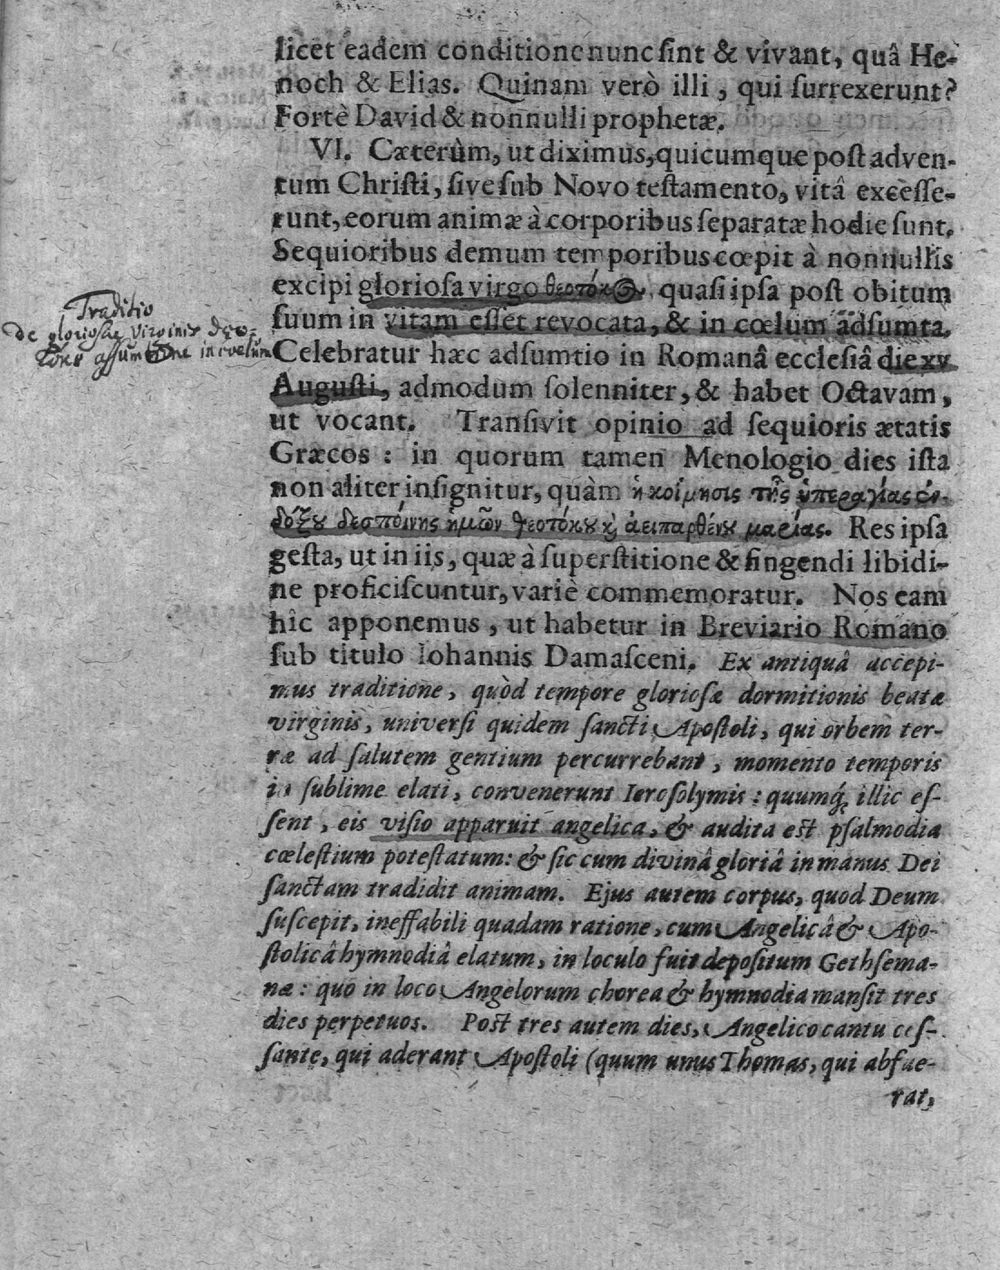 licet eadem conditione nunc sint & vivant, quâ He-
noch & Elias. Quinam verò illi, qui surrexerunt?
Fortè David & nonnulli prophetæ.
VI. Cæterùm, ut diximus, quicumque post adven-
tum Christi, sive sub Novo testamento, vitâ excesse-
runt, eorum animæ à corporibus separatæ hodie sunt.
Sequioribus demum temporibus cœpit à nonnullis
excipi gloriosa virgo θεοτόκος, quasi ipsa post obitum
suum in vitam esset revocata, & in cœlum adsumta.
Celebratur hæc adsumtio in Romanâ ecclesiâ die xv
Augusti, admodum solenniter, & habet Octavam,
ut vocant. Transivit opinio ad sequioris ætatis
Græcos : in quorum tamen Menologio dies ista
non aliter insignitur, quàm ἡ κοίμησις τῆς ὑπεραγίας ἐν-
δόξου δεσποίνης ἡμῶν θεοτόκου κ̀ ἀειπαρθένου μαρίας. Res ipsa
gesta, ut in iis, quæ à superstitione & fingendi libidi-
ne proficiscuntur, variè commemoratur. Nos eam
hîc apponemus, ut habetur in Breviario Romano
sub titulo Iohannis Damasceni. Ex antiquâ accepi-
mus traditione, quòd tempore gloriosæ dormitionis beatæ
virginis, universi quidem sancti Apostoli, qui orbem ter-
ræ ad salutem gentium percurrebant, momento temporis
in sublime elati, convenerunt Ierosolymis : quumq́ꝫ illic es-
sent, eis visio apparuit angelica, & audita est psalmodia
cœlestium potestatum: & sic cum divinâ gloriâ in manus Dei
sanctam tradidit animam. Ejus autem corpus, quod Deum
suscepit, ineffabili quadam ratione, cum Angelicâ & Apo-
stolicâ hymnodiâ elatum, in loculo fuit depositum Gethsema-
næ : quo in loco Angelorum chorea & hymnodia mansit tres
dies perpetuos. Post tres autem dies, Angelico cantu ces-
sante, qui aderant Apostoli (quum unus Thomas, qui abfue-
rat,
Traditio
de gloriosae virginis
assumtione in coelum